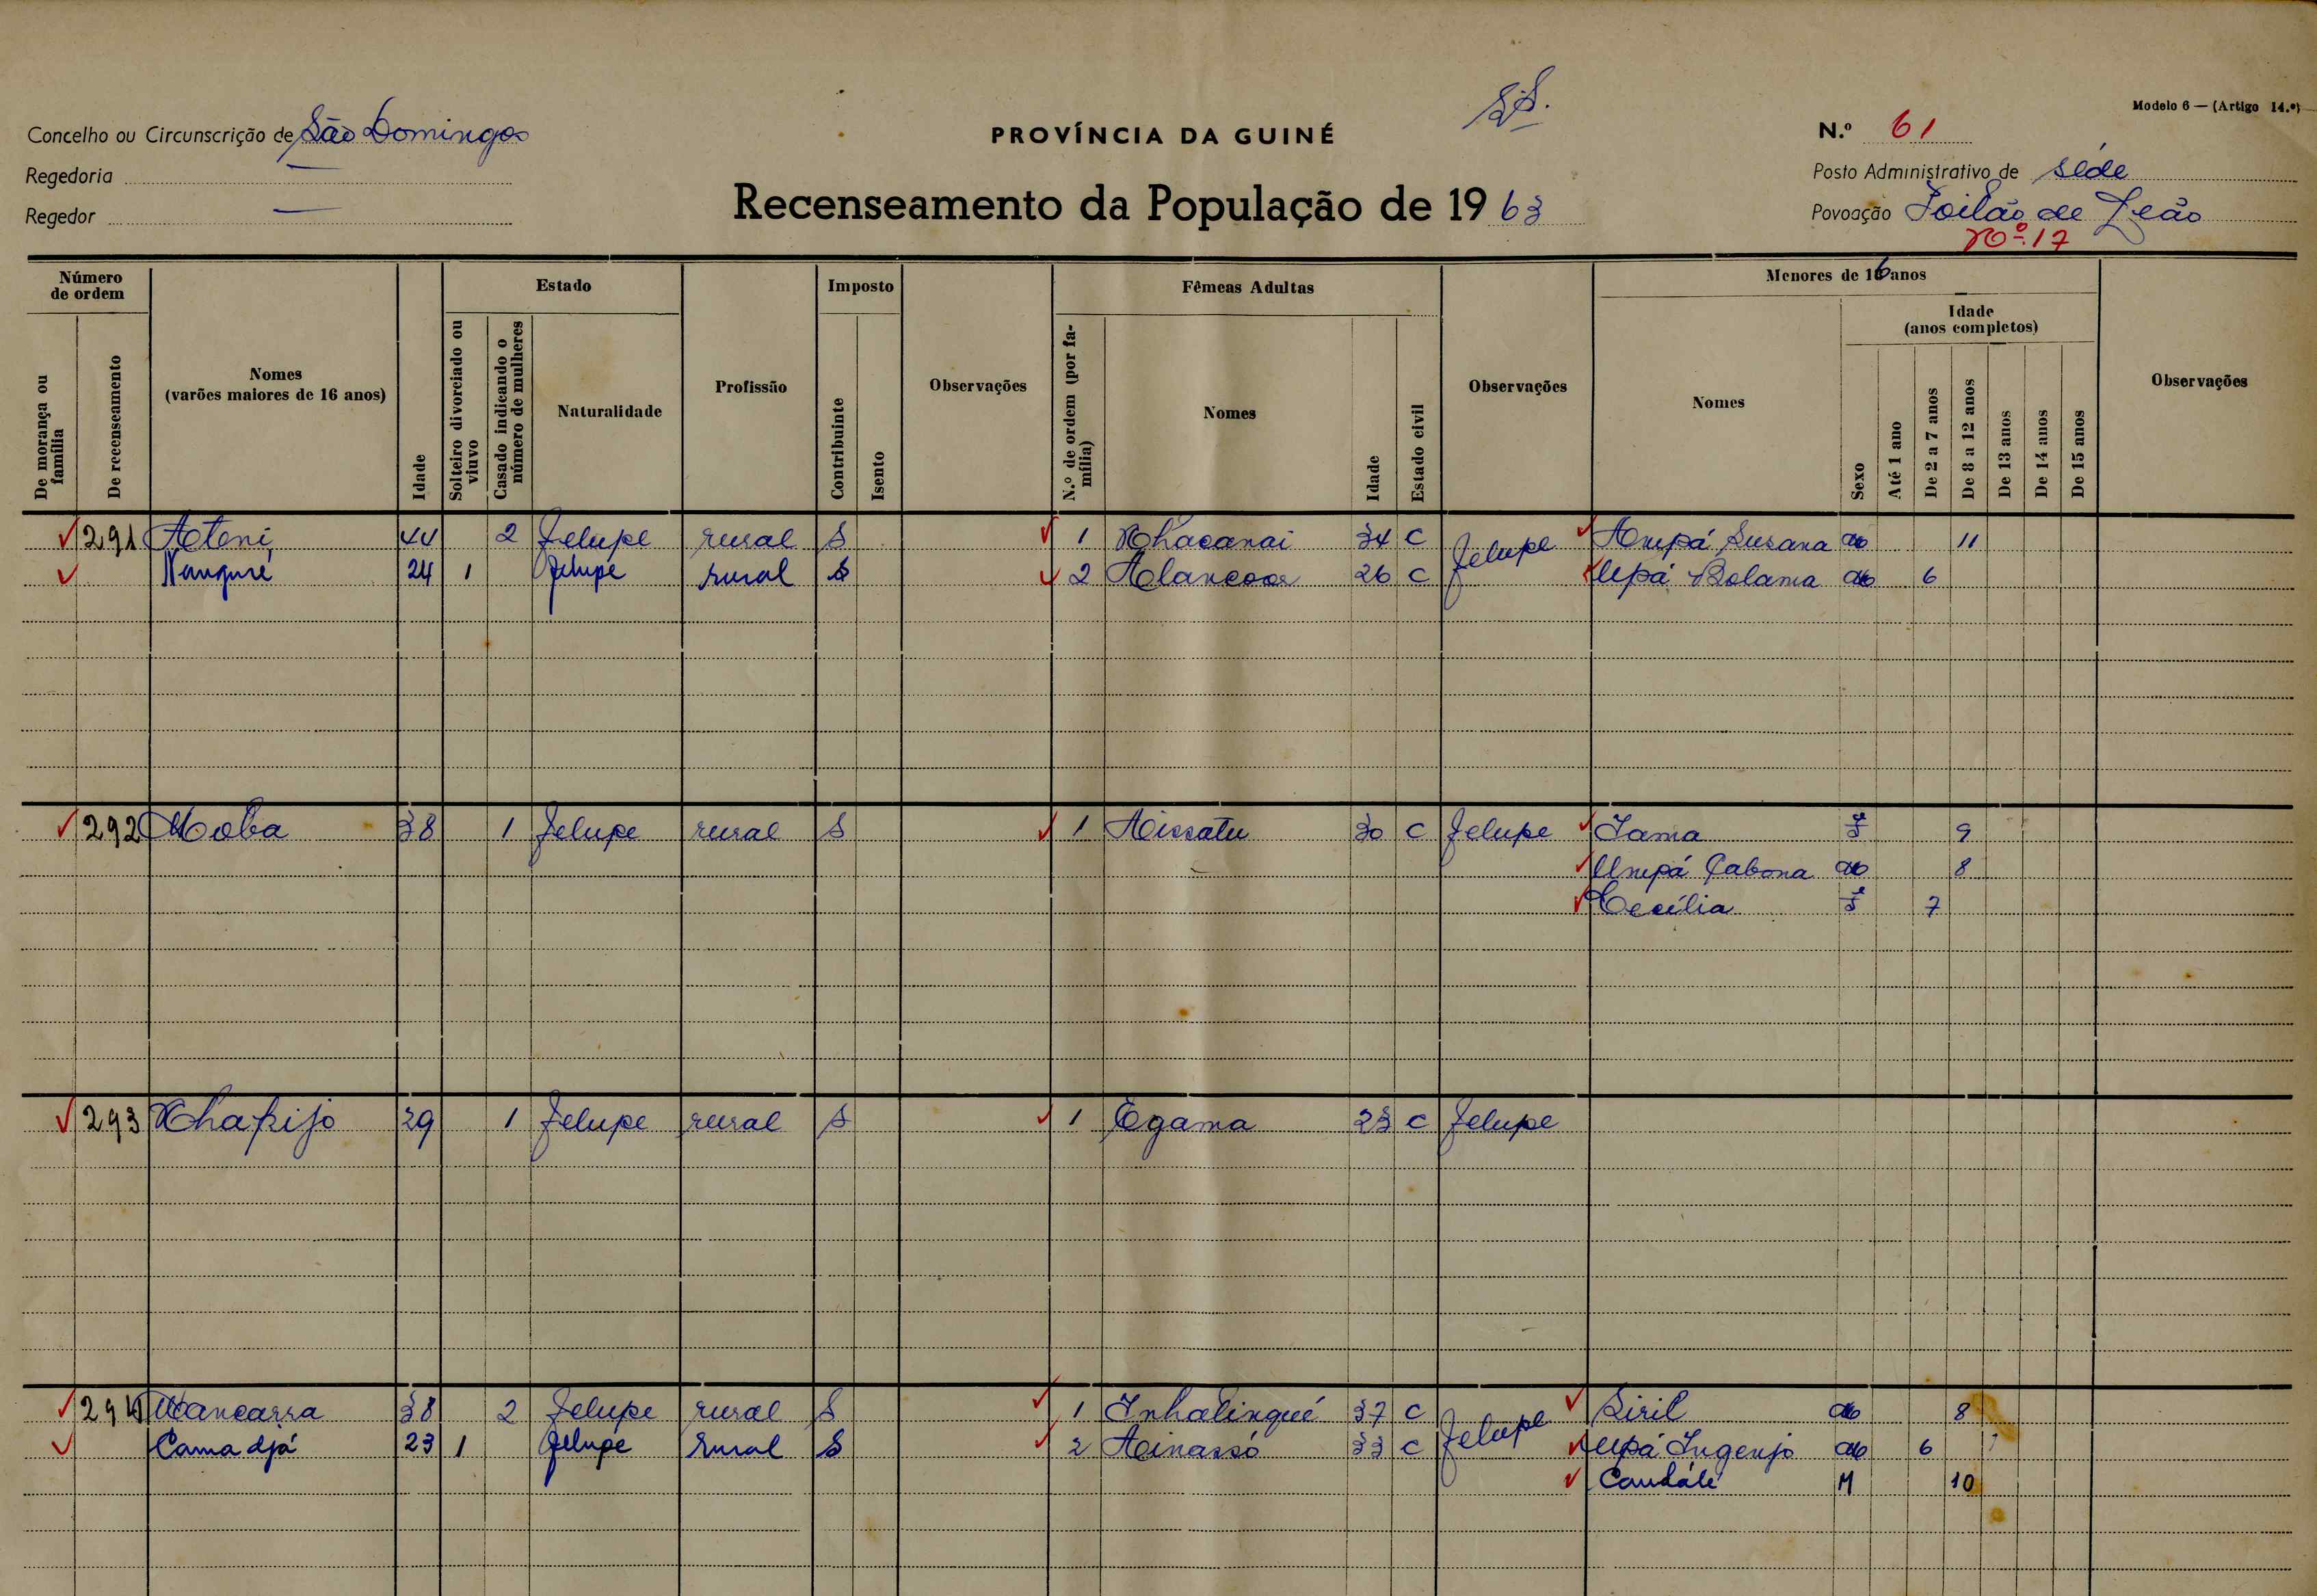 Modelo 6 — (Artigo 14.º)
Concelho ou Circunscrição de São Domingos
PROVÍNCIA DA GUINÉ
N.º 61
Regedoria —
Posto Administrativo de séde
Regedor —
Recenseamento da População de 1963
Povoação Poilão de Leão
nº 17
Número de ordem
Estado
Imposto
Fêmeas Adultas
Menores de 16 anos
Idade (anos completos)
De morança ou família
De recenseamento
Nomes (varões maiores de 16 anos)
Idade
Solteiro divorciado ou viuvo
Casado indicando o número de mulheres
Naturalidade
Profissão
Contribuinte
Isento
Observações
N.º de ordem (por família)
Nomes
Idade
Estado civil
Observações
Nomes
Sexo
Até 1 ano
De 2 a 7 anos
De 8 a 12 anos
De 13 anos
De 14 anos
De 15 anos
Observações
291 Ateni 44 2 Felupe rural S 1 34 C Felupe Ampá Susana M 11
24 1 Felupe rural S 2 26 C Upá Bolama M 6
292 Moba 38 1 Felupe rural S 1 Aissatu 30 C Felupe Fama F 9
Umpá Cabona M 8
Cecília F 7
293 29 1 Felupe rural S 1 Egama 23 C Felupe
294 Mancarra 38 2 Felupe rural S 1 Inhalingué 37 C Felupe Siril M 8
Cama djá 23 1 Felupe rural S 2 Ainassó 33 C Upá Ingenjo M 6
M 10